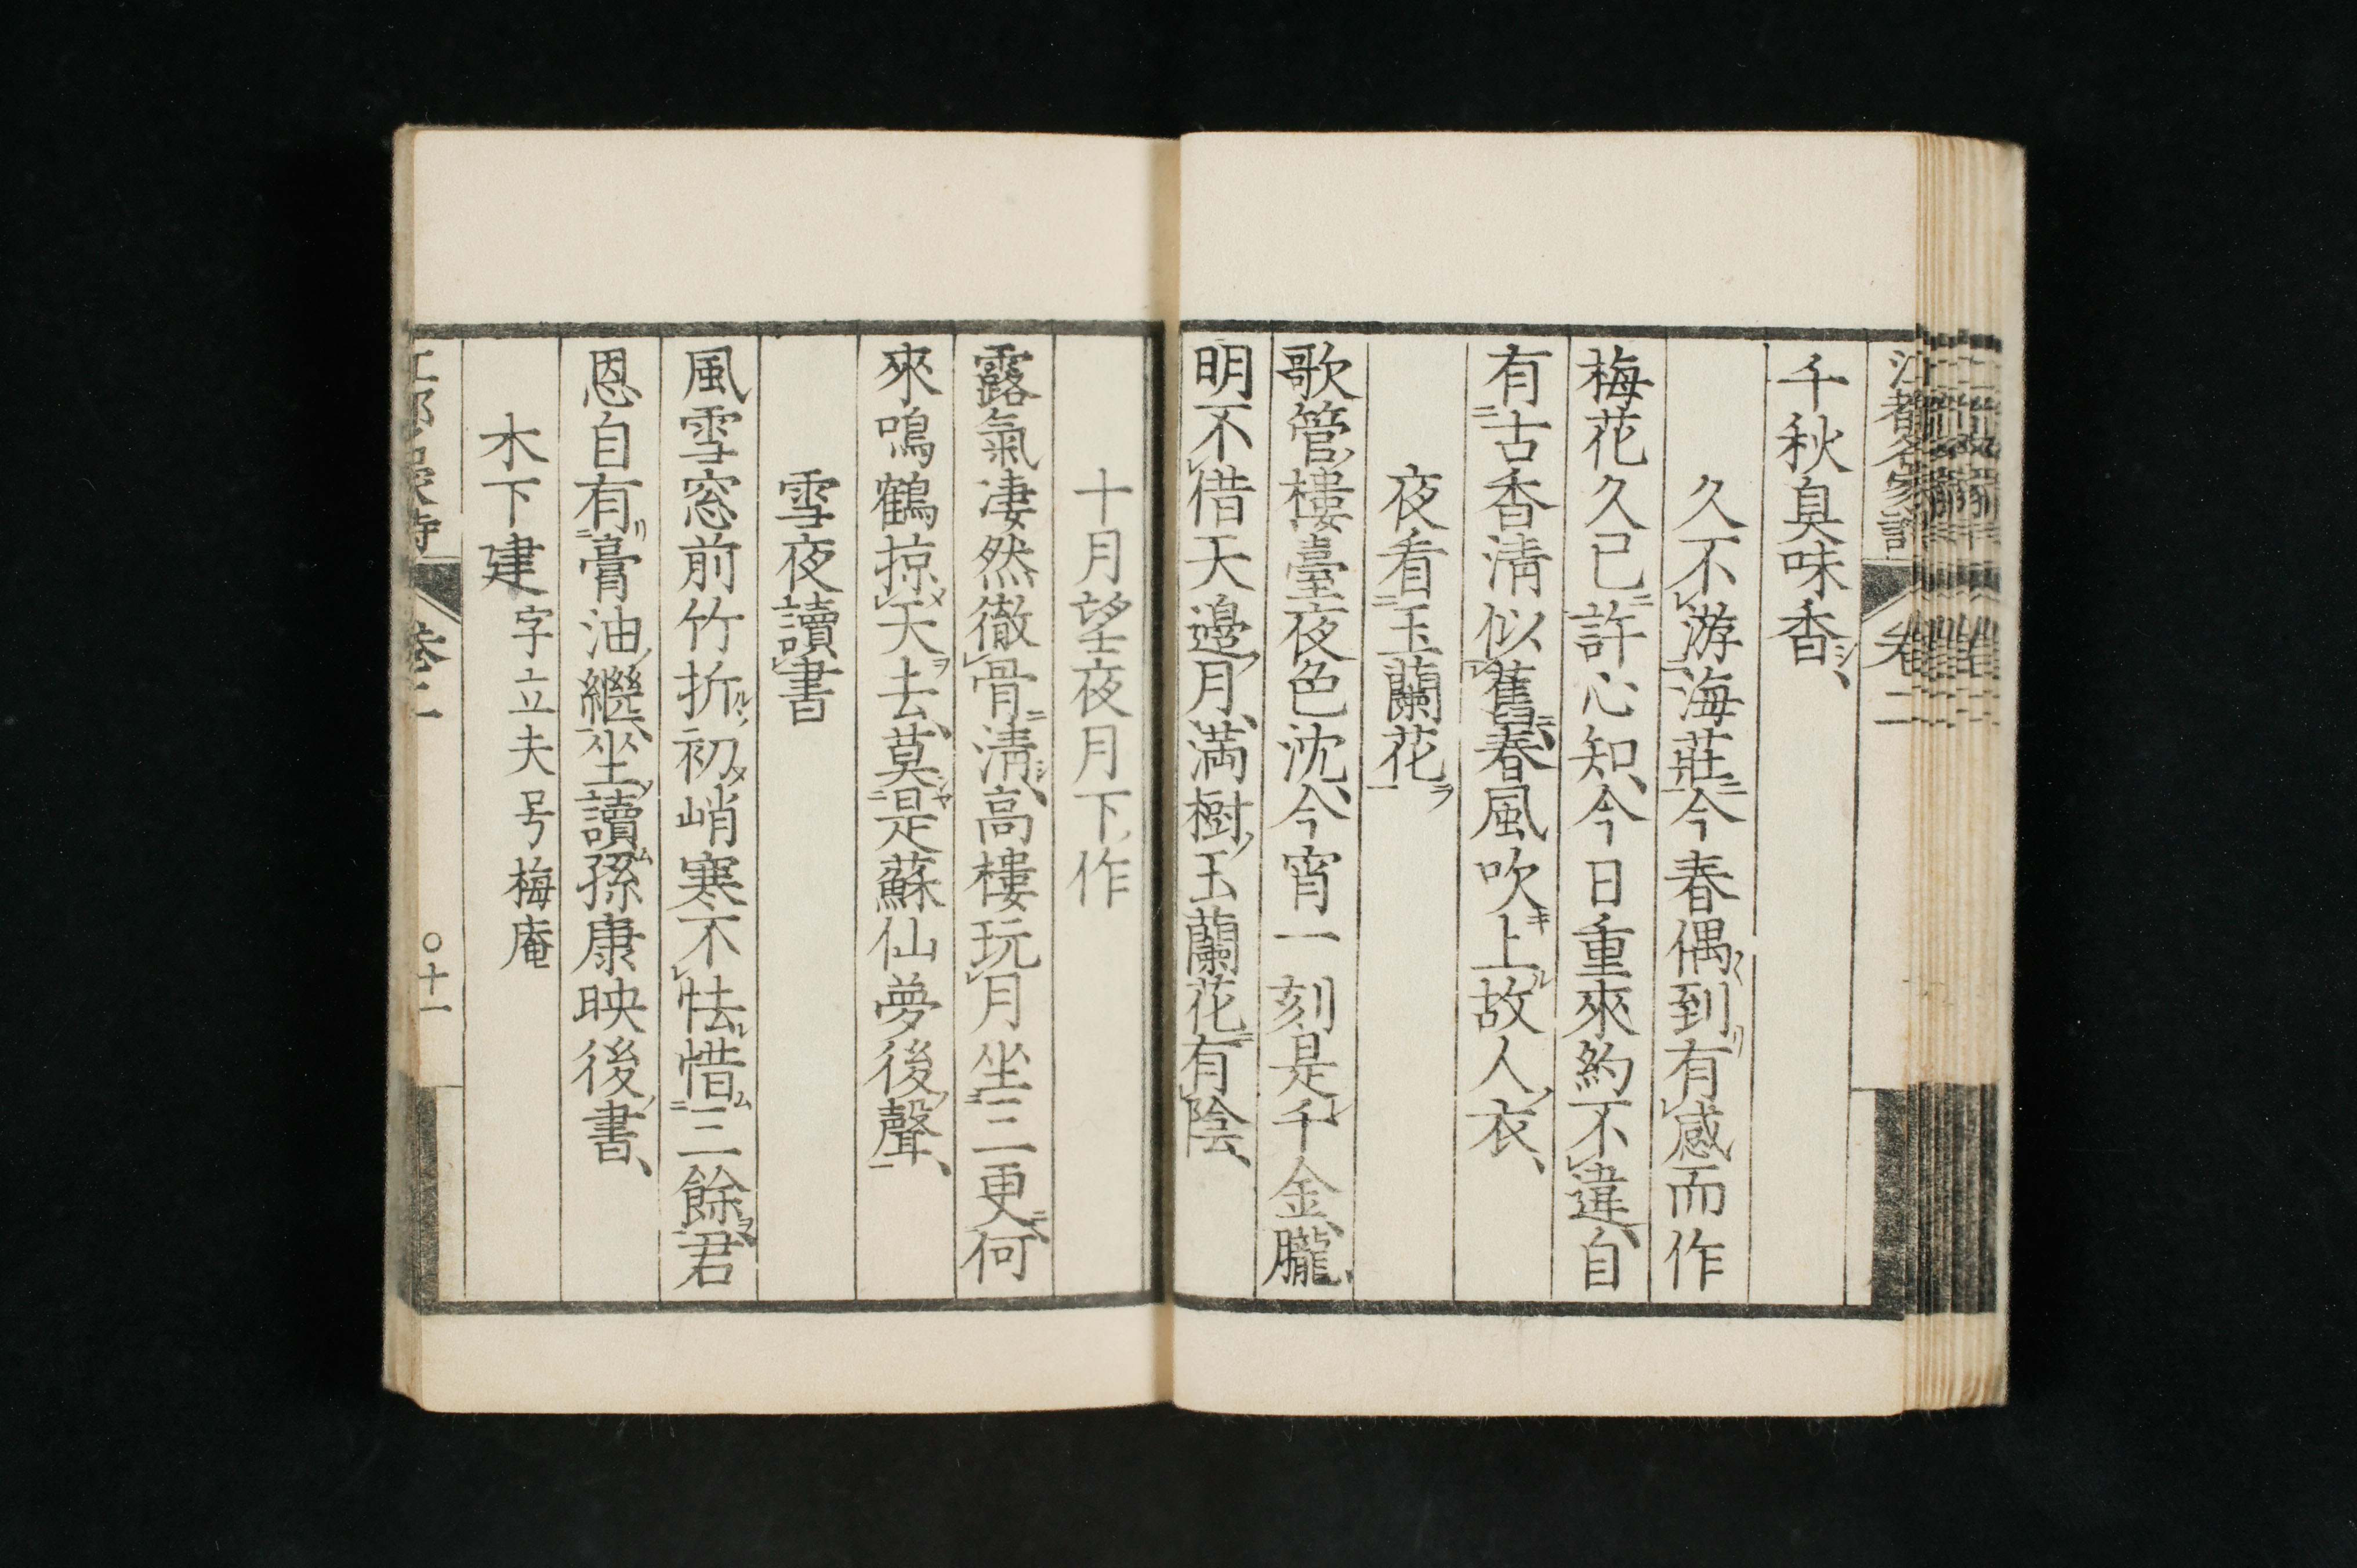 千秋臭味香
久不游海莊今春偶到有感而作
梅花久已許心知今日重來約不違自
有古香淸似舊春風吹上故人衣
夜看玉蘭花
歌管樓臺夜色沈今宵一刻是千金朧
明不借天邊月満樹玉蘭花有陰
十月望夜月下作
露氣凄然徹骨淸高樓玩月坐三更何
來鳴鶴掠天去莫是蘇仙夢後聲
雪夜讀書
風雪窓前竹折初峭寒不怯惜三餘君
恩自有膏油繼坐讀孫康映後書
木下建 字立夫号梅庵
卷二
〇十一